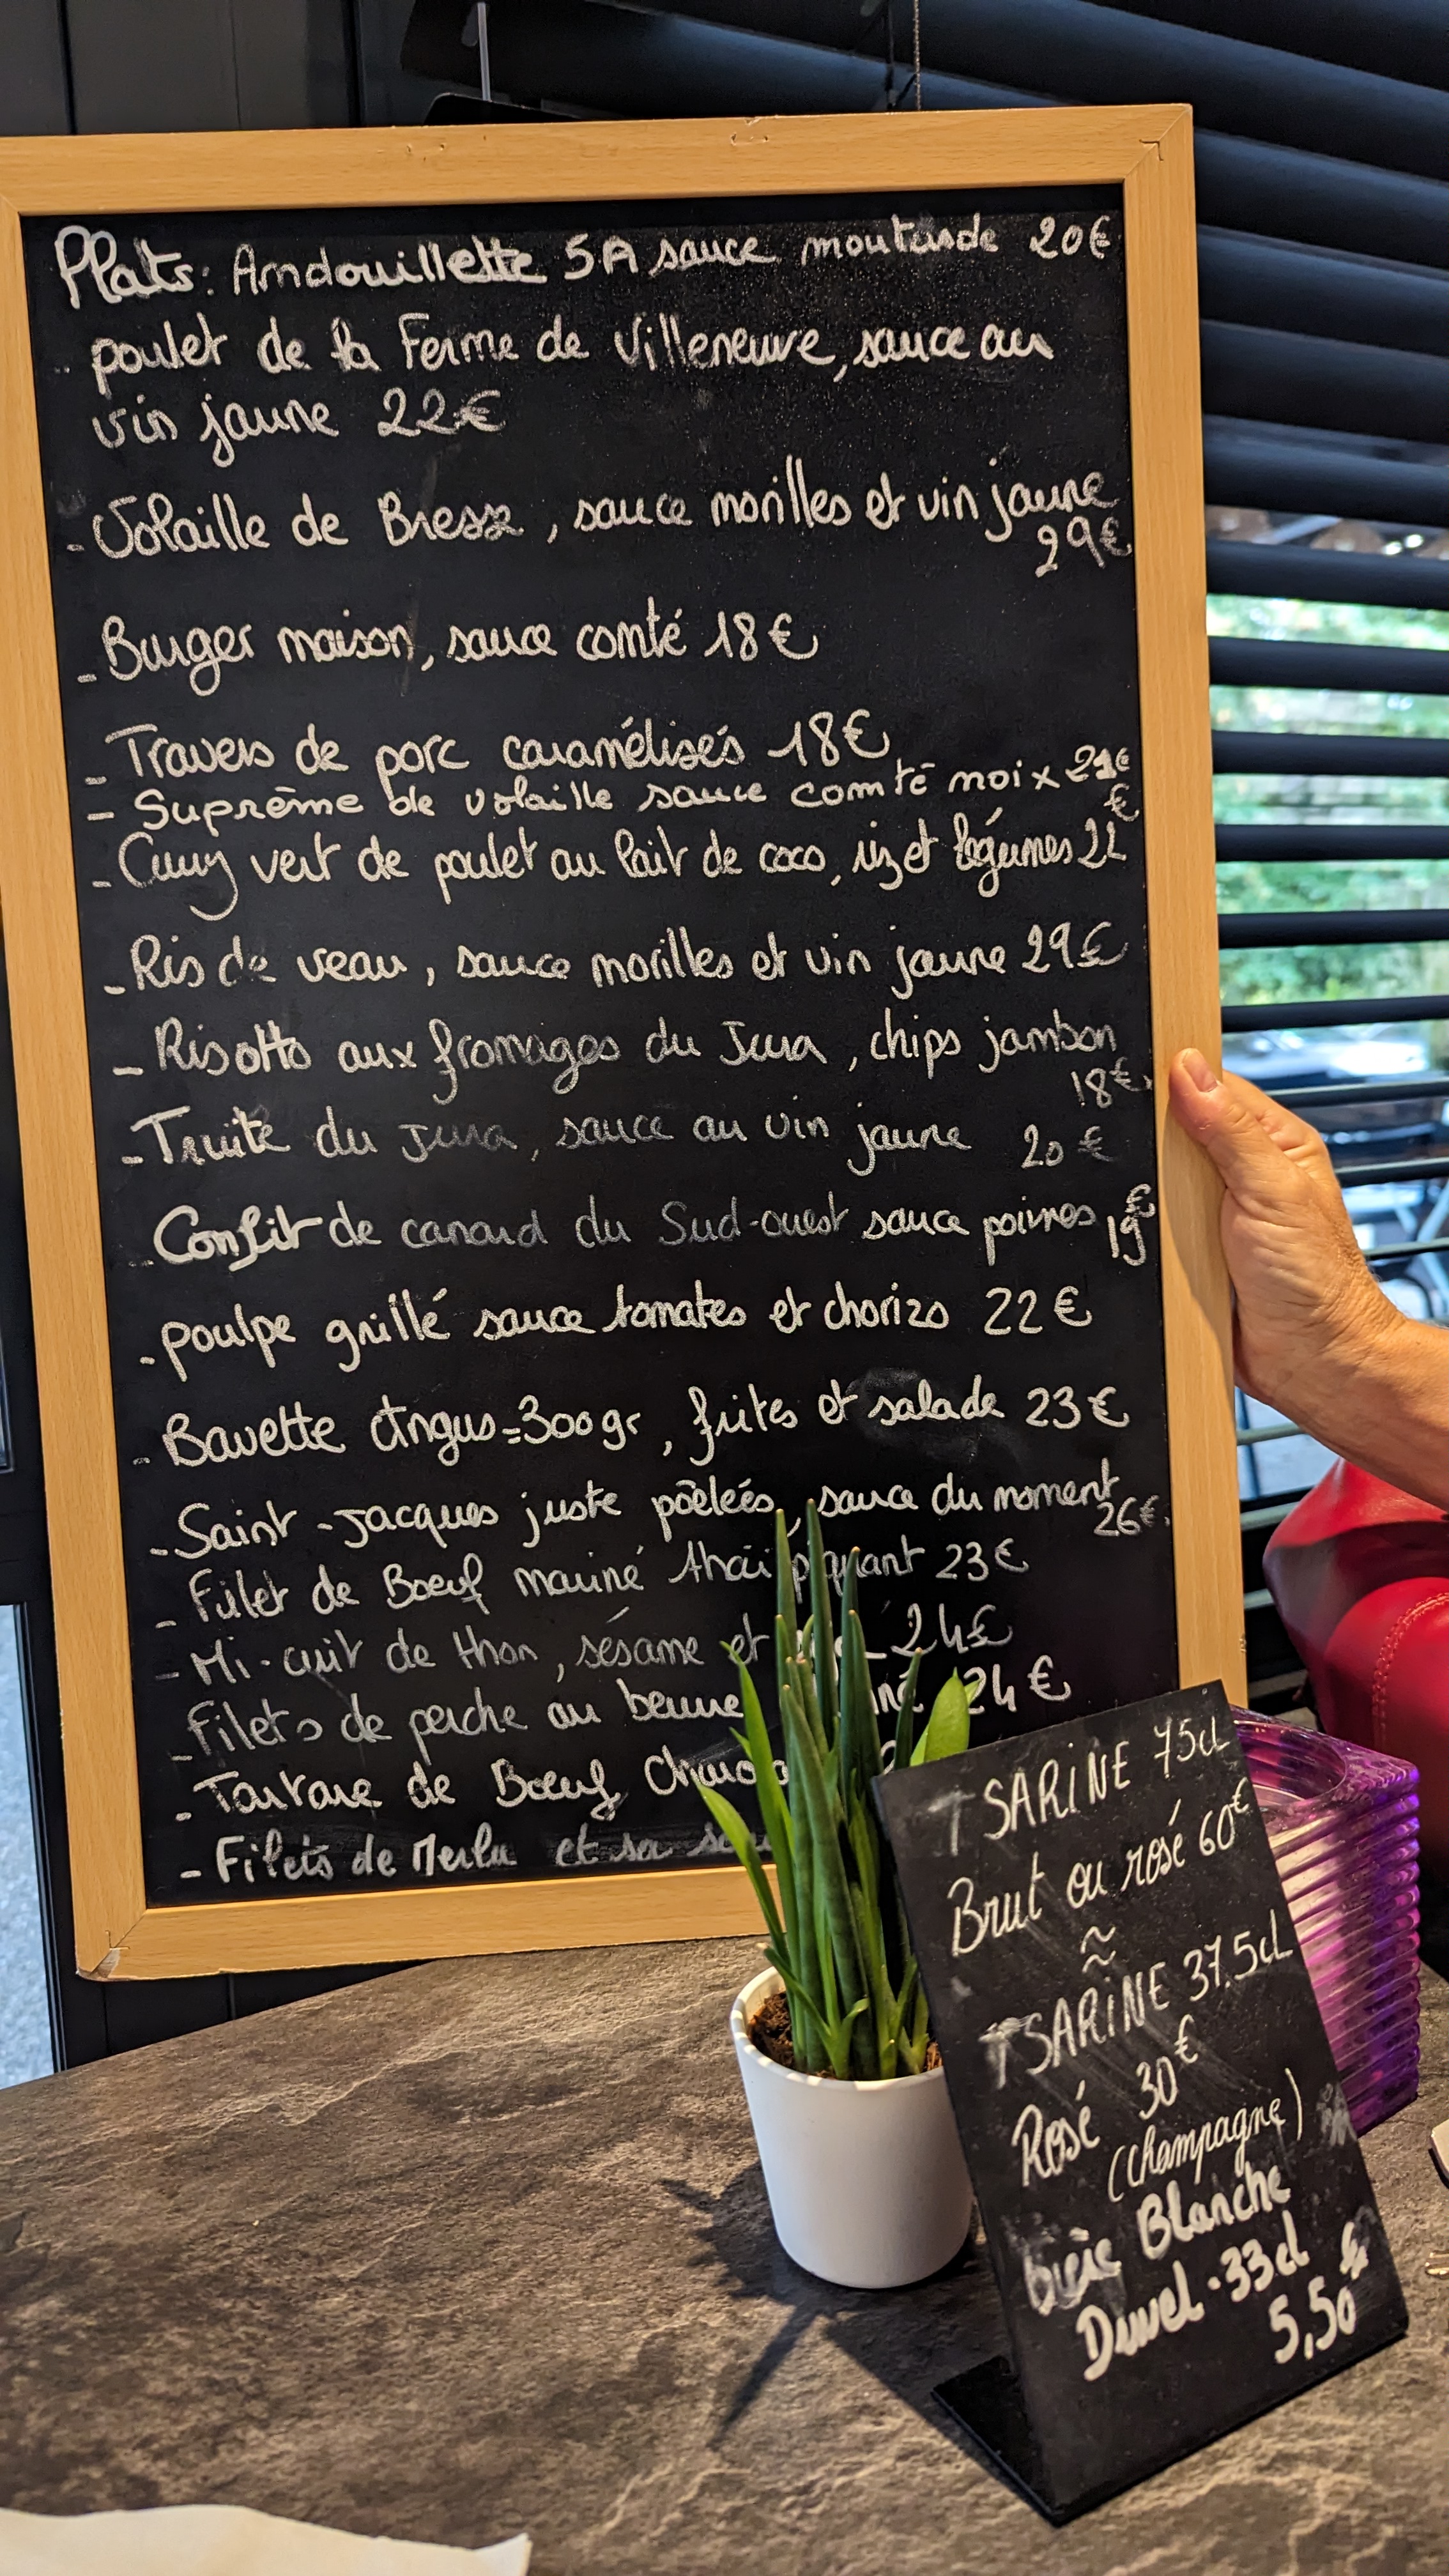 Plats: Andouillette 5A sauce moutarde 20€
- poulet de la Ferme de Villeneuve, sauce au
vin jaune 22€
- Volaille de Bresse, sauce morilles et vin jaune
29€
- Burger maison, sauce comté 18€
- Travers de porc caramélisés 18€
- Suprême de volaille sauce comté noix 21€
- Curry vert de poulet au lait de coco, riz et légumes 21€
- Ris de veau, sauce morilles et vin jaune 29€
- Risotto aux fromages du Jura, chips jambon
18€
- Truite du Jura, sauce au vin jaune 20€
- Confit de canard du Sud-ouest sauce poivres 19€
- poulpe grillé sauce tomates et chorizo 22€
- Bavette Angus=300gr, frites et salade 23€
- Saint-Jacques juste poêlées, sauce du moment
26€
- Filet de Boeuf mariné thaï piquant 23€
- Mi-cuit de thon, sésame et 24€
- Filets de perche au beurre 24€
- Tartare de Boeuf
- Filets de Merlu et sa
TSARINE 75cl
Brut ou rosé 60€
~
~
TSARINE 37.5cl
Rosé 30€
(champagne)
bière Blanche
Duvel.33cl
5,50€